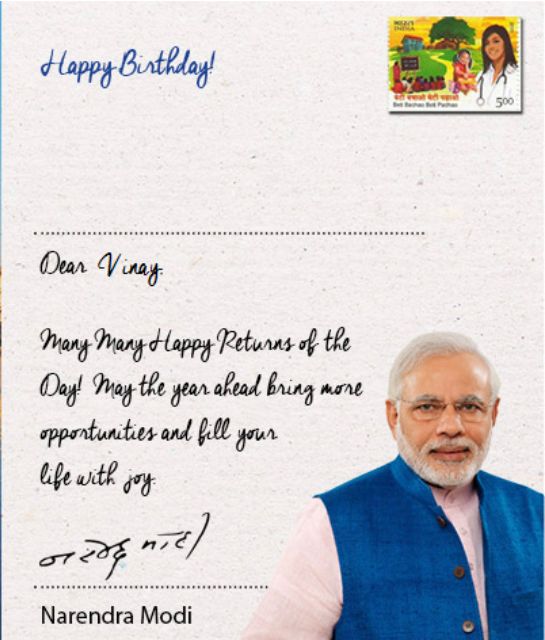 Happy Birthday!
भारत INDIA
बेटी बचाओ बेटी पढ़ाओ
Beti Bachao Beti Padhao
500
Dear Vinay.
Many Many Happy Returns of the
Day! May the year ahead bring more
opportunities and fill your
life with joy.
नरेन्द्र मोदी
Narendra Modi